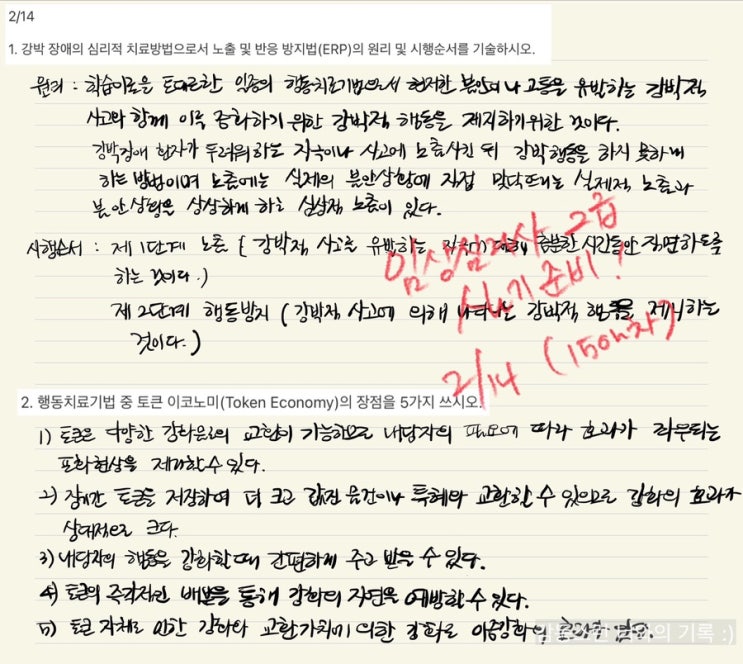 2/14
1. 강박 장애의 심리적 치료방법으로서 노출 및 반응 방지법(ERP)의 원리 및 시행순서를 기술하시오.
원리 : 학습이론을 토대로한 일종의 행동치료기법으로서 현저한 불안이나 고통을 유발하는 강박적
사고와 함께 이를 중화하기 위한 강박적 행동을 제지하기위한 것이다.
강박장애 환자가 두려워하는 자극이나 사고에 노출시킨 뒤 강박행동을 하지 못하게
하는 방법이며 노출에는 실제의 불안상황에 직접 맞닥뜨리는 실제적 노출과
불안상황을 상상하게 하는 심상적 노출이 있다.
시행순서 : 제1단계 노출 ( 강박적 사고를 유발하는 대해 충분한 시간동안 직면하도록
하는 것이다.)
제2단계 행동방지 (강박적 사고에 의해 나타나는 강박적 행동을 제지하는
것이다.)
임상심리사 2급
실기 준비!
2/14 (150h차)
2. 행동치료기법 중 토큰 이코노미(Token Economy)의 장점을 5가지 쓰시오.
1) 토큰은 다양한 강화물로의 교환이 가능하므로 내담자의 따라 효과가 좌우되는
포화현상을 제거할수 있다.
2) 장시간 토큰을 저장하여 더 크고 값진 물건이나 특혜와 교환할 수 있으므로 강화의 효과가
상대적으로 크다.
3) 내담자의 행동을 강화할때 간편하게 주고 받을 수 있다.
4) 토큰의 즉각적인 배분을 통해 강화의 지연을 예방할수 있다.
5) 토큰 자체로 인한 강화와 교환가치에 의한 강화로 이중강화의
기록 :)